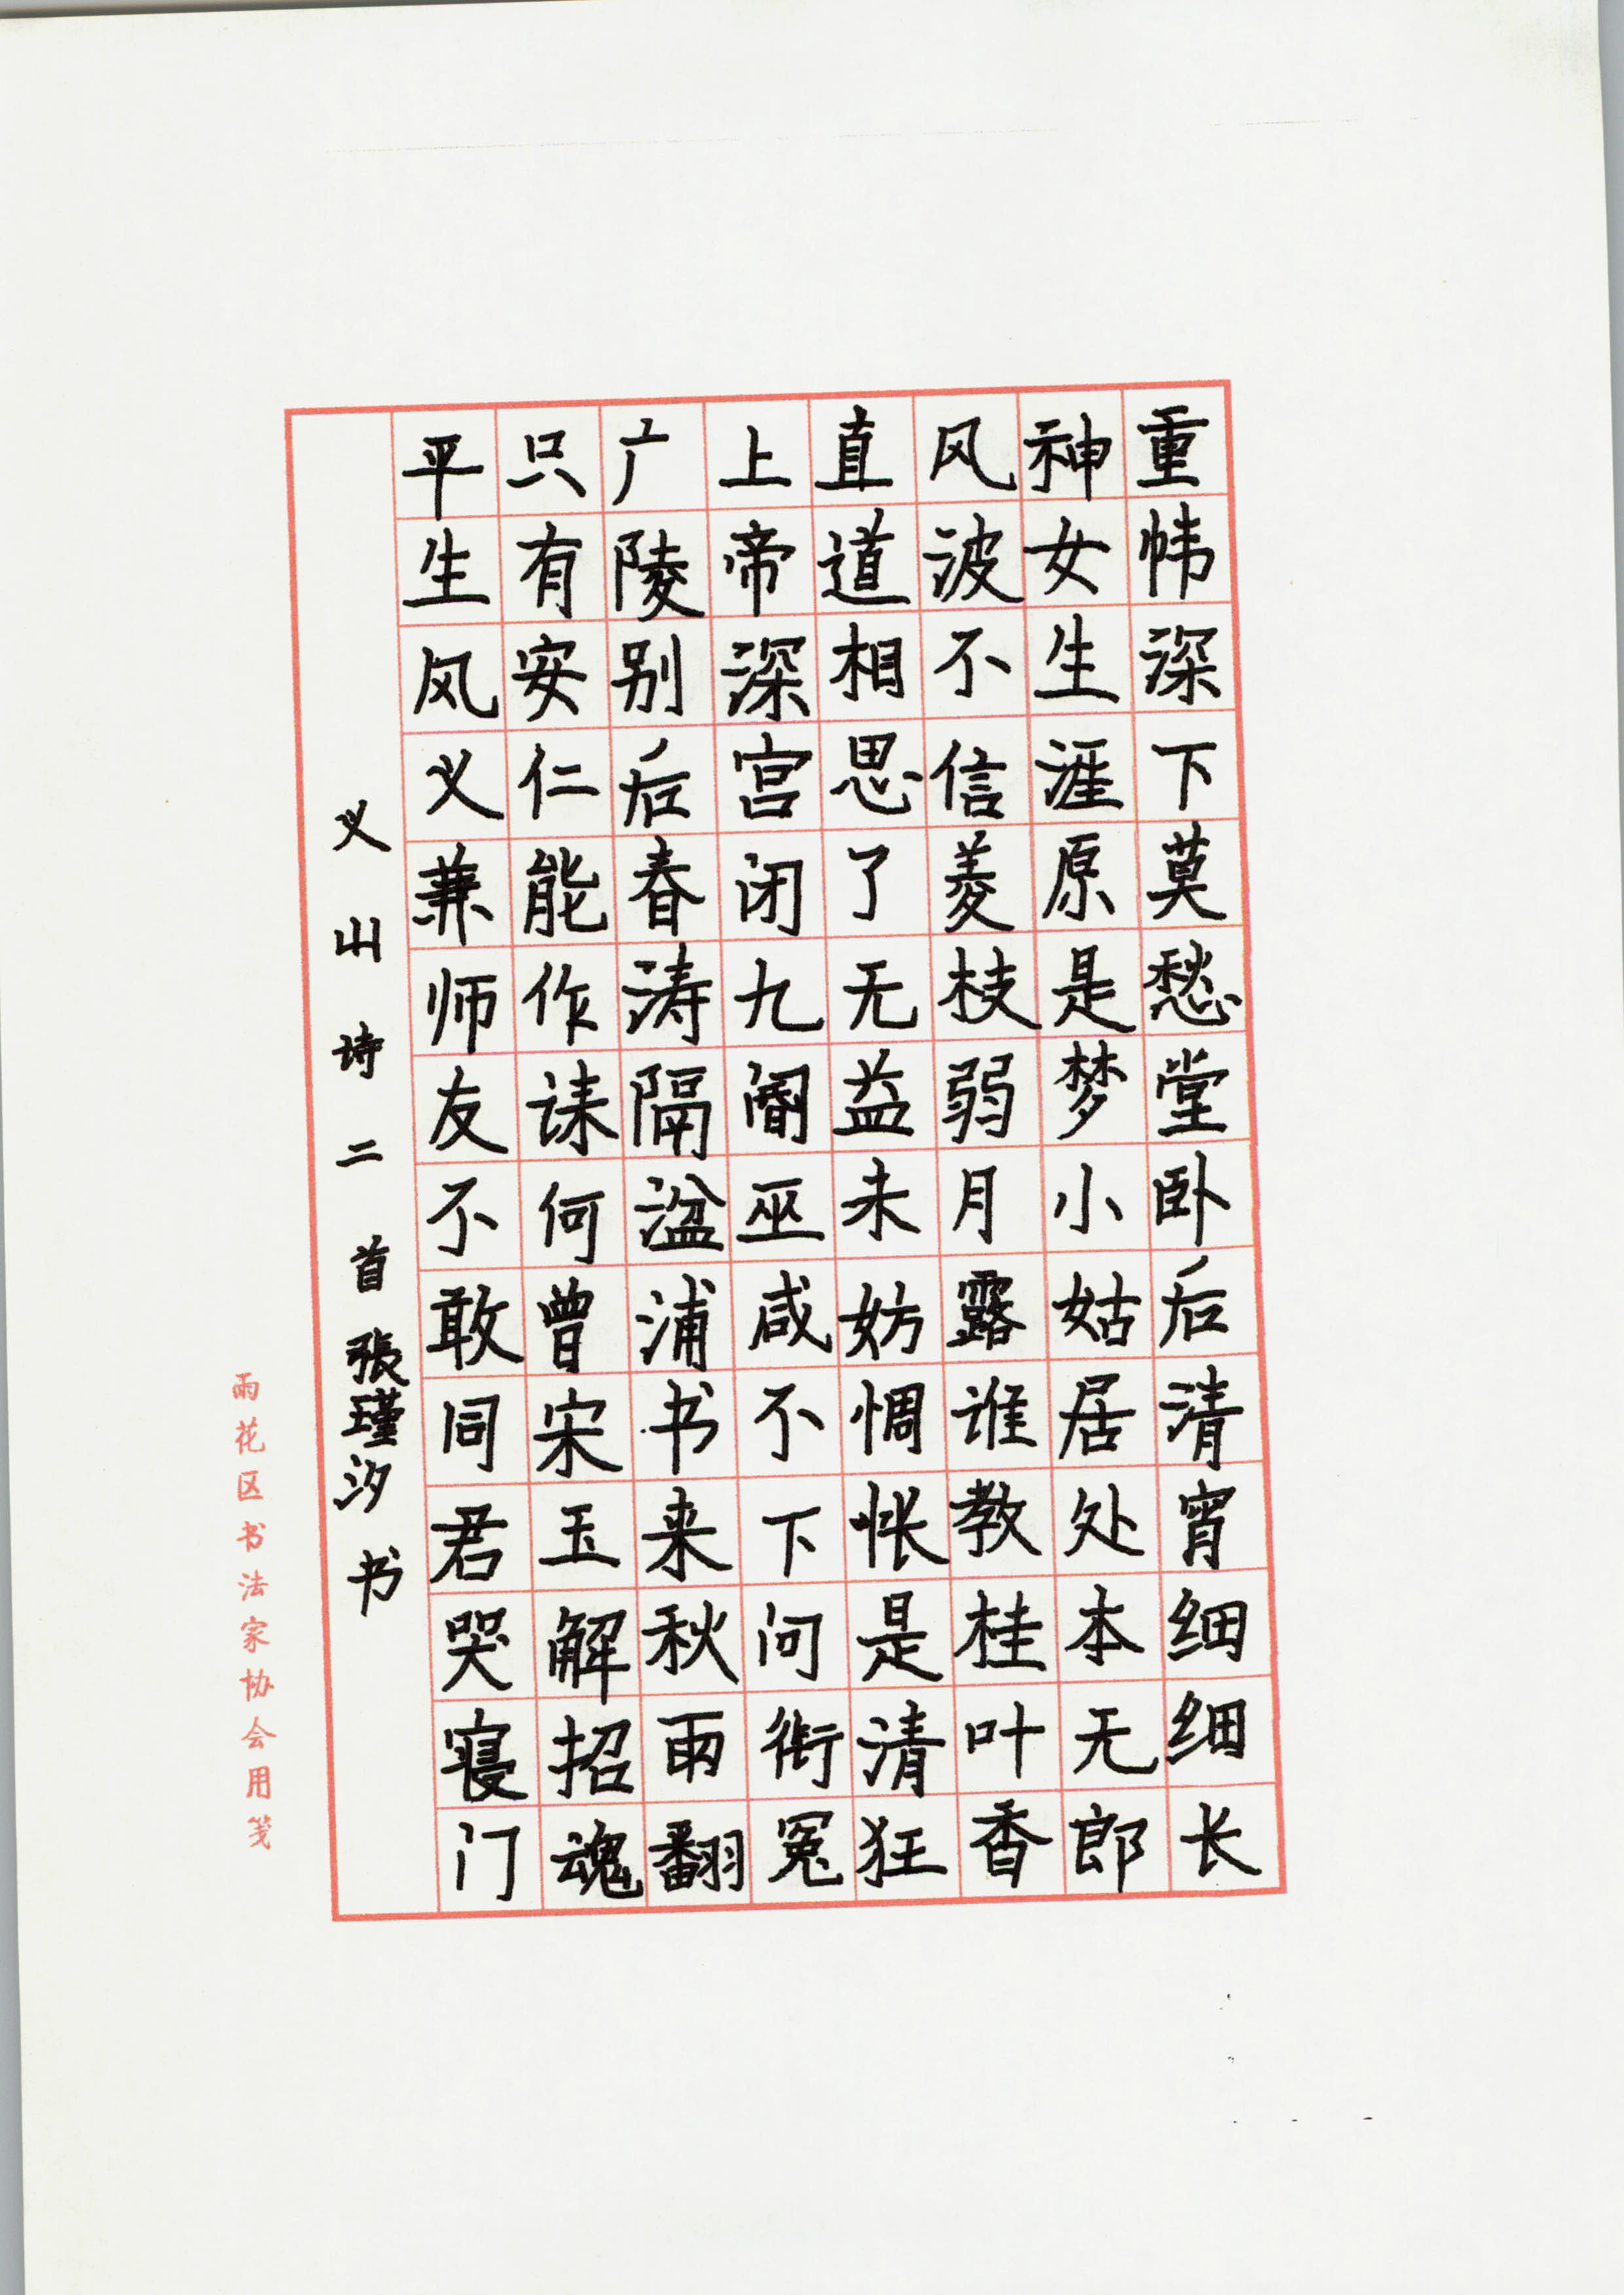 重帏深下莫愁堂卧后清宵细细长
神女生涯原是梦小姑居处本无郎
风波不信菱枝弱月露谁教桂叶香
直道相思了无益未妨惆怅是清狂
上帝深宫闭九阍巫咸不下问衔冤
广陵别后春涛隔湓浦书来秋雨翻
只有安仁能作诔何曾宋玉解招魂
平生风义兼师友不敢同君哭寝门
义山诗二首張瑾汐书
雨花区书法家协会用笺